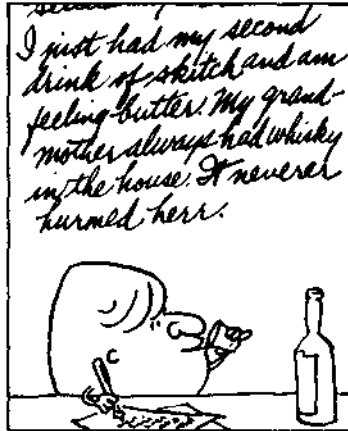 I just had my second
drink of skitch and am
feeling butter. My grand-
mother always had whisky
in the house. It neverer
hurmed herr.